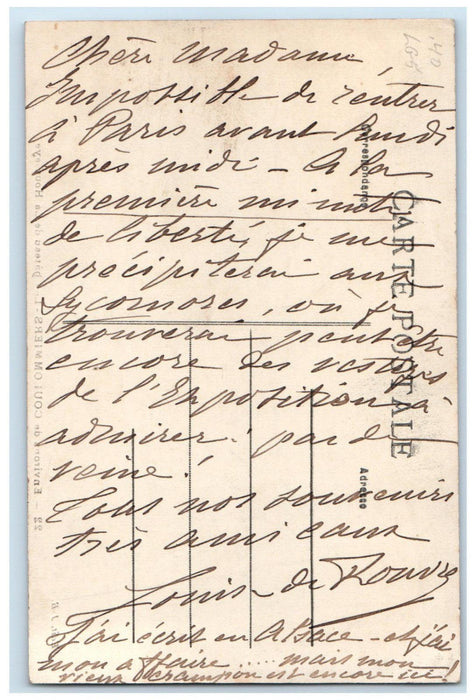 Chère Madame,
Impossible de rentrer
à Paris avant lundi
après midi - A la
première minute
de liberté, je me
précipiterai aux
Sycomores, où je
trouverai peut être
encore des vestiges
de l'Exposition à
admirer! pas de
veine!
Tous nos souvenirs
très amicaux
Louis de Rouvre
J'ai écrit en Alsace - et j'ai
mon affaire ..... mais mon
vieux crampon est encore ici!
CARTE POSTALE
Correspondance
Adresse
22 - Environs de COULOMMIERS - Château de la Houssaye